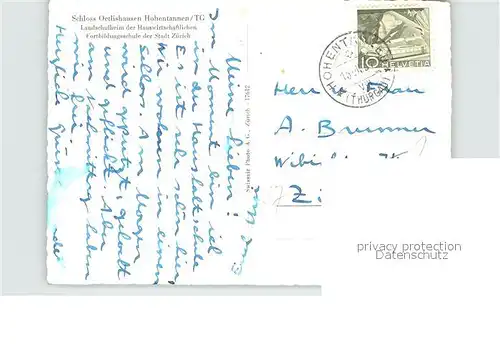 Schloss Oetlishausen Hohentannen/TG
Landschulheim der Hauswirtschaftlichen
Fortbildungsschule der Stadt Zürich
Meine Lieben!
Im Moment bin ich
in der Haushaltschule
Es ist sehr schön hier
Wir wohnen in einem
Schloss. Am Morgen
wird geputzt, gekocht
und geflickt. Aber
am Nachmittag haben
wir frei.
Swissair Photo A.G., Zürich
HOHENTANNEN
(THURGAU)
10
HELVETIA
Herr Frau
A. Brunner
privacy protection
Datenschutz